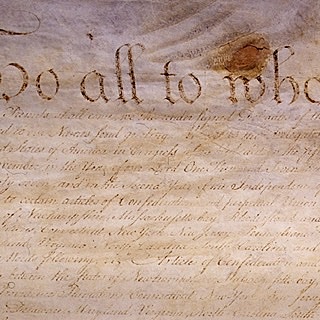 To all to who
Presents shall come, we the under signed Delegates of the
to our Names send greeting. Whereas the Delegates
States of America in Congress
November in the Year of our Lord One Thousand Seven
and in the Second Year of the Independence
to certain articles of Confederation and perpetual Union
of Newhampshire, Massachusetts-bay, Rhodeisland and
Connecticut, New York, New Jersey, Penn
Virginia, North Carolina, South Carolina and
Words following, viz. Articles of Confederation and
between the States of Newhampshire, Massachusetts-bay,
Providence Plantations, Connecticut, New York, New Jersey,
Delaware, Maryland, Virginia, North Carolina, South